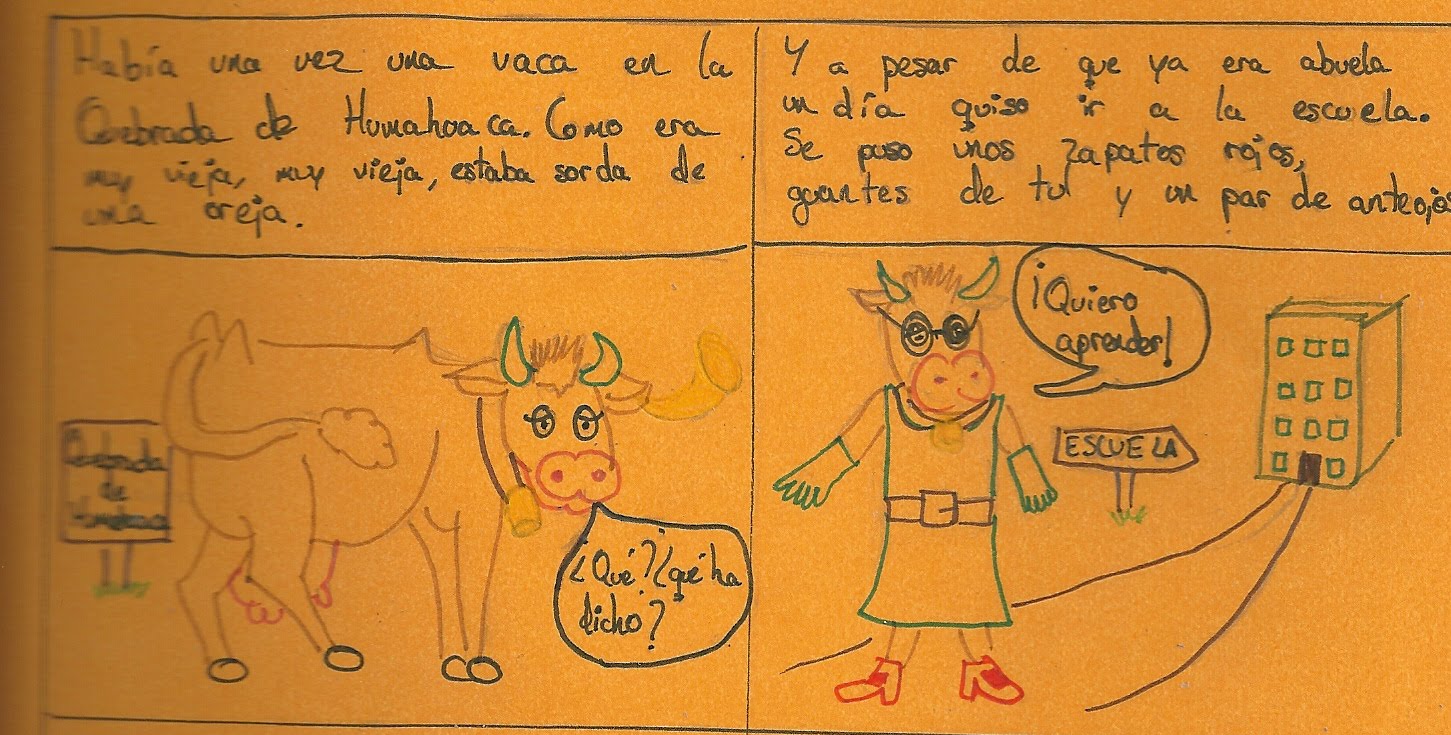 Había una vez una vaca en la
Quebrada de Humahoaca. Como era
muy vieja, muy vieja, estaba sorda de
una oreja.
Y a pesar de que ya era abuela
un día quiso ir a la escuela.
Se puso unos zapatos rojos,
guantes de tul y un par de anteojos
Quebrada
de
¿Qué? ¿qué ha
dicho?
¡Quiero
aprender!
ESCUELA